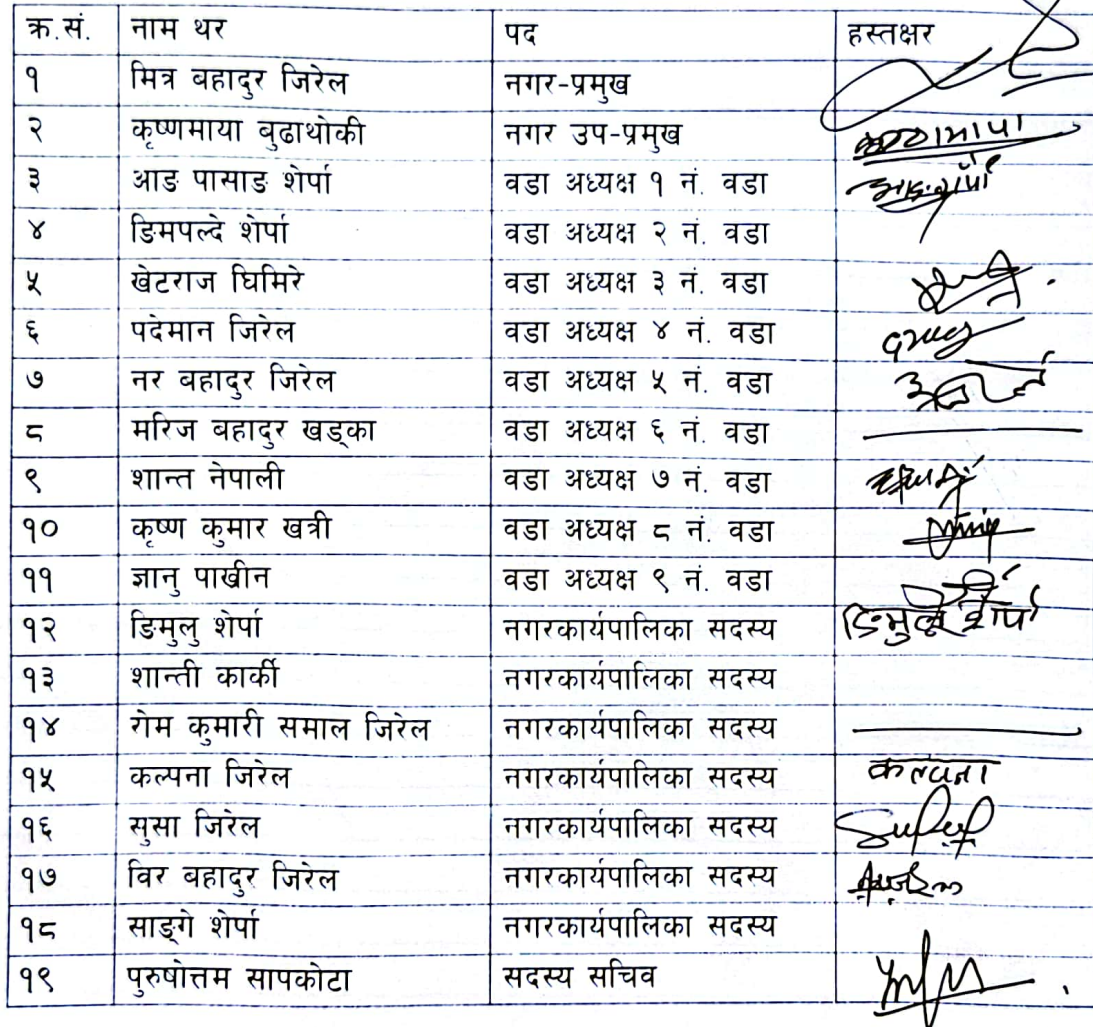 क्र.सं. नाम थर पद हस्तक्षर
१ मित्र बहादुर जिरेल नगर-प्रमुख
२ कृष्णमाया बुढाथोकी नगर उप-प्रमुख कृष्णमाया
३ आङ पासाङ शेर्पा वडा अध्यक्ष १ नं. वडा
४ ङिमपल्दे शेर्पा वडा अध्यक्ष २ नं. वडा
५ खेटराज घिमिरे वडा अध्यक्ष ३ नं. वडा
६ पदेमान जिरेल वडा अध्यक्ष ४ नं. वडा
७ नर बहादुर जिरेल वडा अध्यक्ष ५ नं. वडा
८ मरिज बहादुर खड्का वडा अध्यक्ष ६ नं. वडा
९ शान्त नेपाली वडा अध्यक्ष ७ नं. वडा
१० कृष्ण कुमार खत्री वडा अध्यक्ष ८ नं. वडा
११ ज्ञानु पाखीन वडा अध्यक्ष ९ नं. वडा
१२ ङिमुलु शेर्पा नगरकार्यपालिका सदस्य ङिमुलु शेर्पा
१३ शान्ती कार्की नगरकार्यपालिका सदस्य
१४ गोम कुमारी समाल जिरेल नगरकार्यपालिका सदस्य
१५ कल्पना जिरेल नगरकार्यपालिका सदस्य कल्पना
१६ सुसा जिरेल नगरकार्यपालिका सदस्य
१७ विर बहादुर जिरेल नगरकार्यपालिका सदस्य
१८ साङ्गे शेर्पा नगरकार्यपालिका सदस्य
१९ पुरुषोत्तम सापकोटा सदस्य सचिव